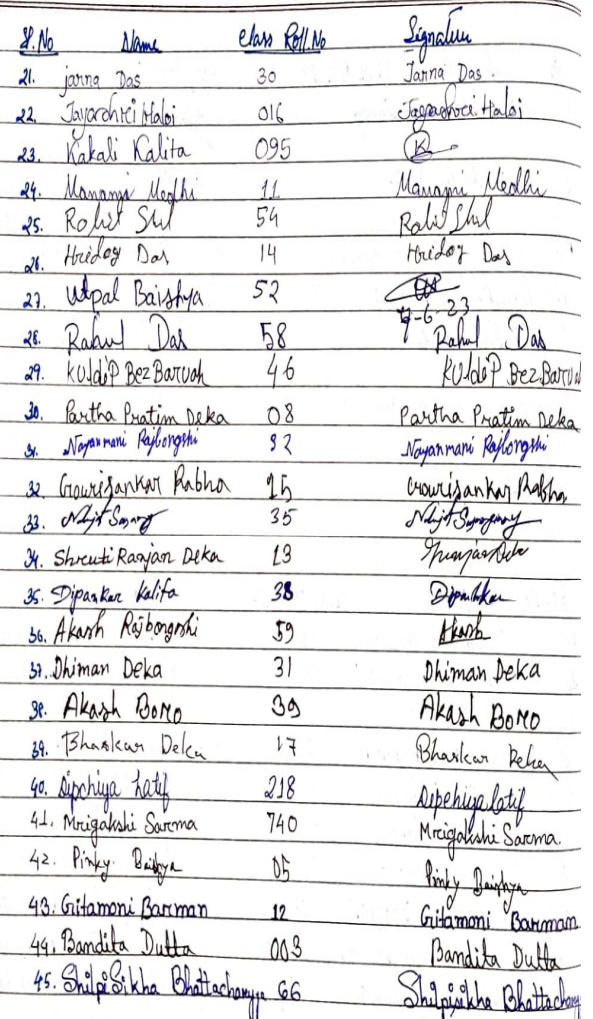 Sl. No Name Class Roll. No Signature
21. jarna Das 30 Jarna Das.
22. Jayarshri Haloi 016 Haloi
23. Kakali Kalita 095 K
24. Manami Medhi 11 Manami Medhi
25. Rohit Shil 54 Rohit Shil
26. Hridoy Das 14 Hridoy Das
27. Utpal Baishya 52
7-6-23
28. Rahul Das 58 Rahul Das
29. KUldiP Bez Baruah 46 KUldiP Bez Barua
30. Partha Pratim Deka 08 Partha Pratim Deka
31. Nayanmani Rajbongshi 32 Nayanmani Rajbongshi
32 Gourisankar Rabha 15 Gourisankar Rabha
33. 35
34. Shruti Ranjan Deka 13
35. Dipankar Kalita 38 Dipankar
36. Akash Rajbongshi 59 Akash
37. Dhiman Deka 31 Dhiman Deka
38. Akash BoRO 39 Akash BoRO
39. Bhaskar Deka 17 Bhaskar Deka
40. Dipehiya Latif 218 Dipehiya latif
41. Mrigakshi Sarma 740 Mrigakshi Sarma.
42. Pinky Baishya 05 Pinky Baishya
43. Gitamoni Barman 12 Gitamoni Barman
44. Bandita Dutta 003 Bandita Dutta
45. Shilpi Sikha Bhattacharyya 66 Shilpisikha Bhattachary